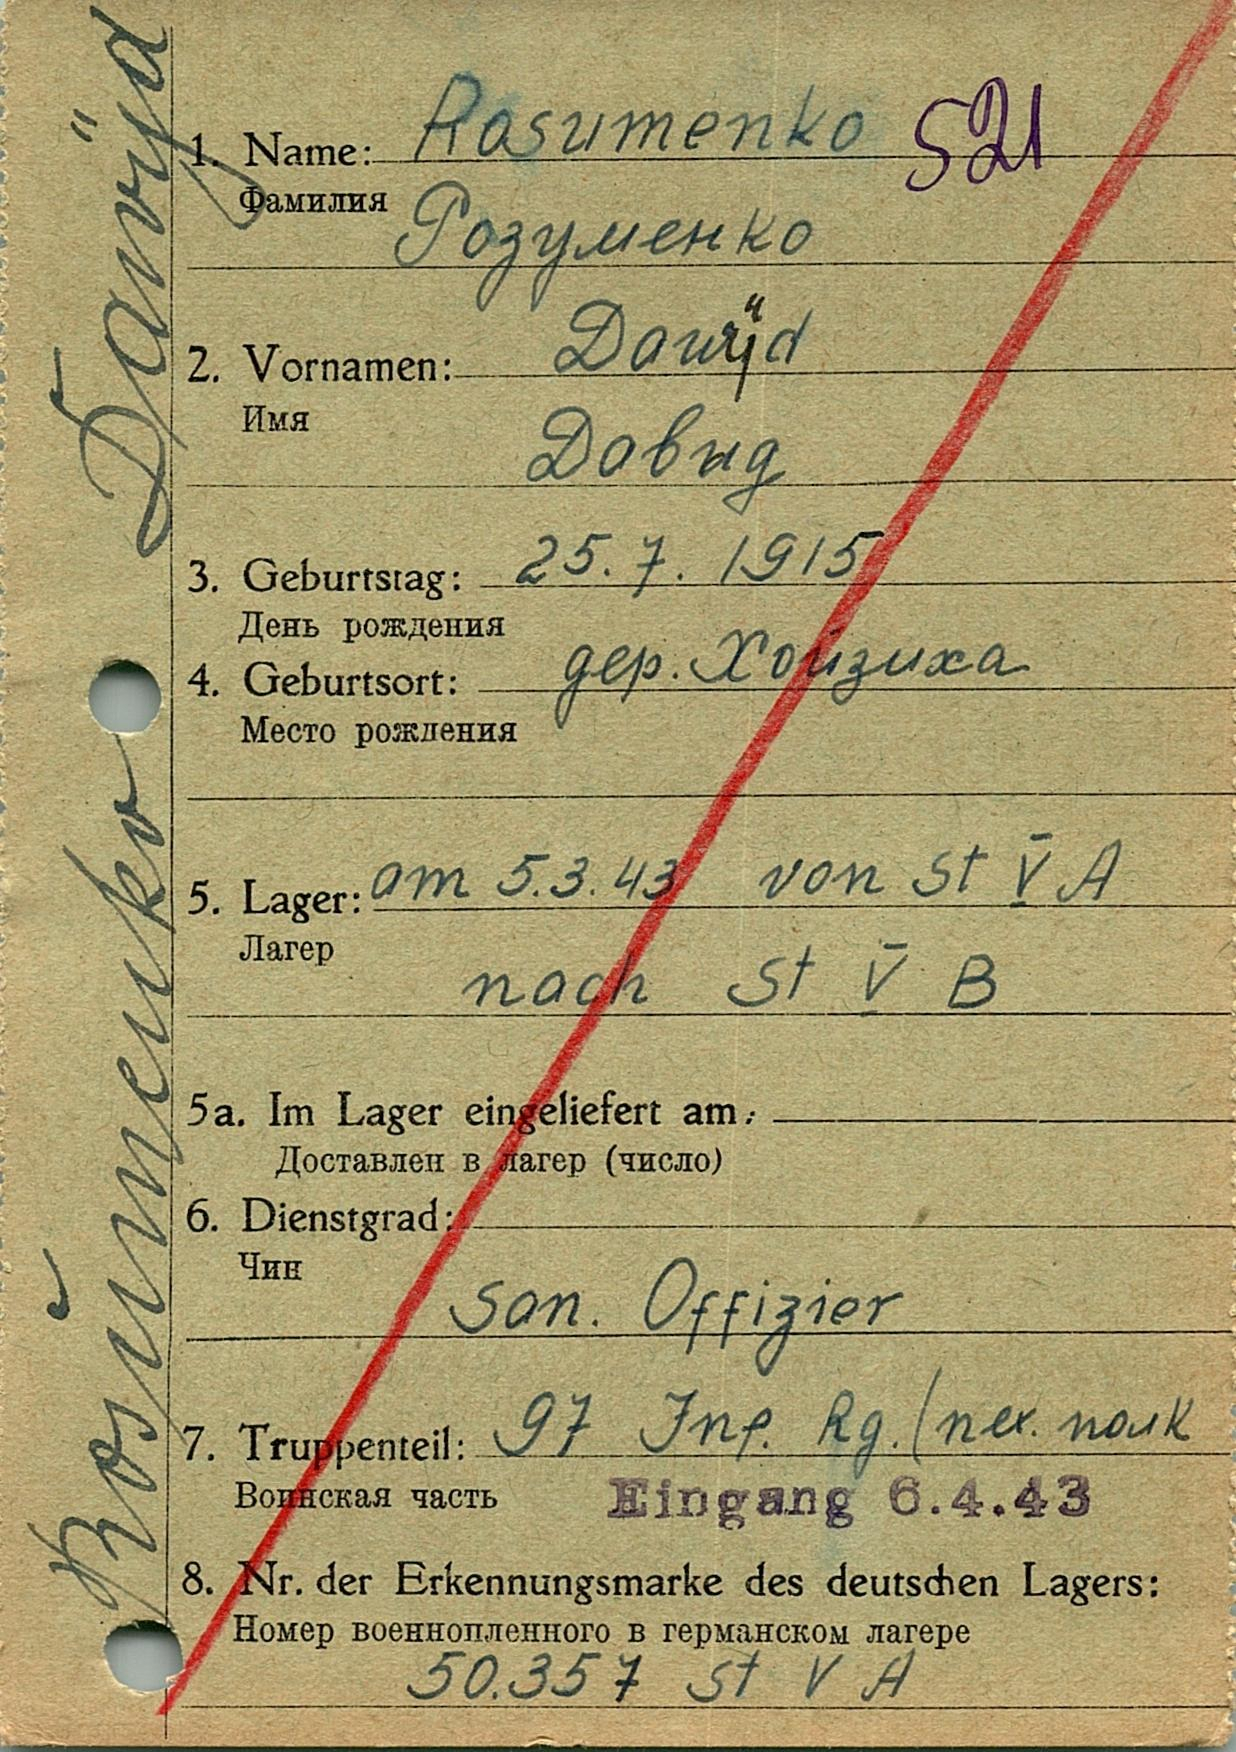 Rosumenko Dawÿd
1. Name: Rasumenko 521
Фамилия
Розуменко
2. Vornamen: Dawÿd
Имя
Довид
3. Geburtstag: 25.7.1915
День рождения
4. Geburtsort: дер. Хойзиха
Место рождения
5. Lager: am 5.3.43 von St V A
Лагер
nach St V B
5a. Im Lager eingeliefert am:
Доставлен в лагер (число)
6. Dienstgrad:
Чин
San. Offizier
7. Truppenteil: 97 Inf. Rg. (пех. полк
Воинская часть
Eingang 6.4.43
8. Nr. der Erkennungsmarke des deutschen Lagers:
Номер военнопленного в германском лагере
50.357 St V A